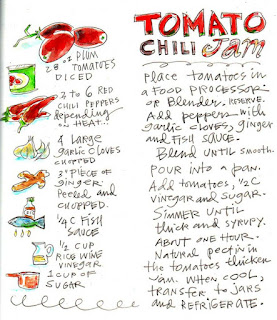 28 oz PLUM
TOMATOES
DICED
2 to 6 RED
CHILI PEPPERS
depending
on HEAT...
4 Large
garlic cloves
CHOPPED
3" PIECE of
Ginger
Peeled and
CHOPPED.
1/4 C FISH
SAUCE
1/2 CUP
RICE WINE
VINEGAR
1 CUP OF
SUGAR
TOMATO
CHILI Jam
Place tomatoes in
a FOOD PROCESSOR
or Blender. RESERVE.
Add peppers with
garlic cloves, ginger
and FISH SAUCE.
Blend UNTIL SMOOTH.
POUR into a pan.
Add tomatoes, 1/2 C
Vinegar and sugar.
SIMMER UNTIL
thick and syrupy.
ABOUT ONE HOUR.
Natural pectin in
the tomatoes thicken
Jam. WHEN COOL,
transfer to jars
and REFRIGERATE.